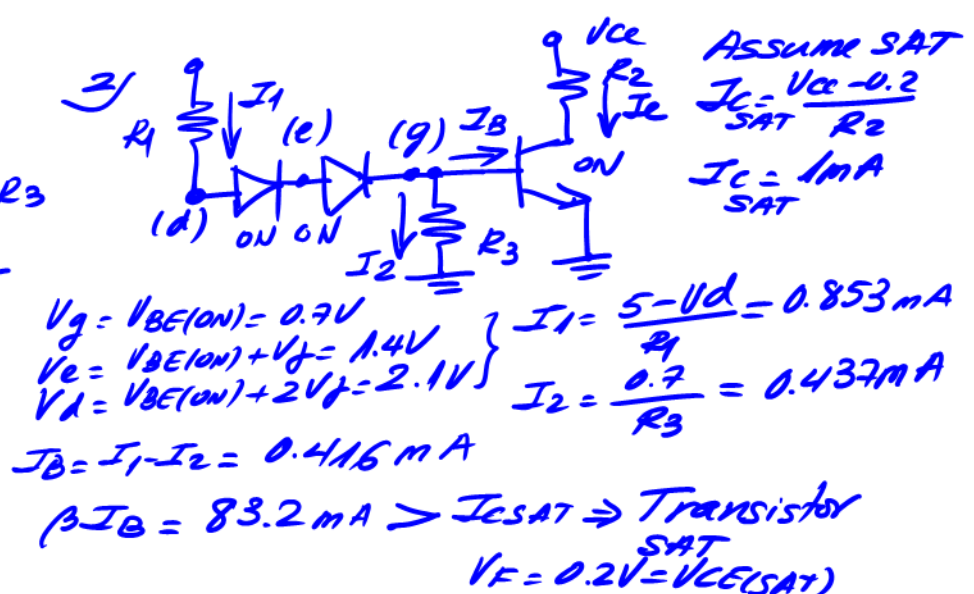 2/
R1
I1
(d)
ON ON
(e)
(g)
IB
I2
R3
Vcc
R2
Ic
ON
Assume SAT
IcSAT = Vcc - 0.2 / R2
IcSAT = 1mA
R3
Vg = VBE(ON) = 0.7V
Ve = VBE(ON) + Vf = 1.4V
Vd = VBE(ON) + 2Vf = 2.1V
I1 = 5 - Vd / R1 = 0.853 mA
I2 = 0.7 / R3 = 0.437 mA
IB = I1 - I2 = 0.416 mA
βIB = 83.2 mA > ICSAT ⇒ Transistor SAT
VF = 0.2V = VCE(SAT)